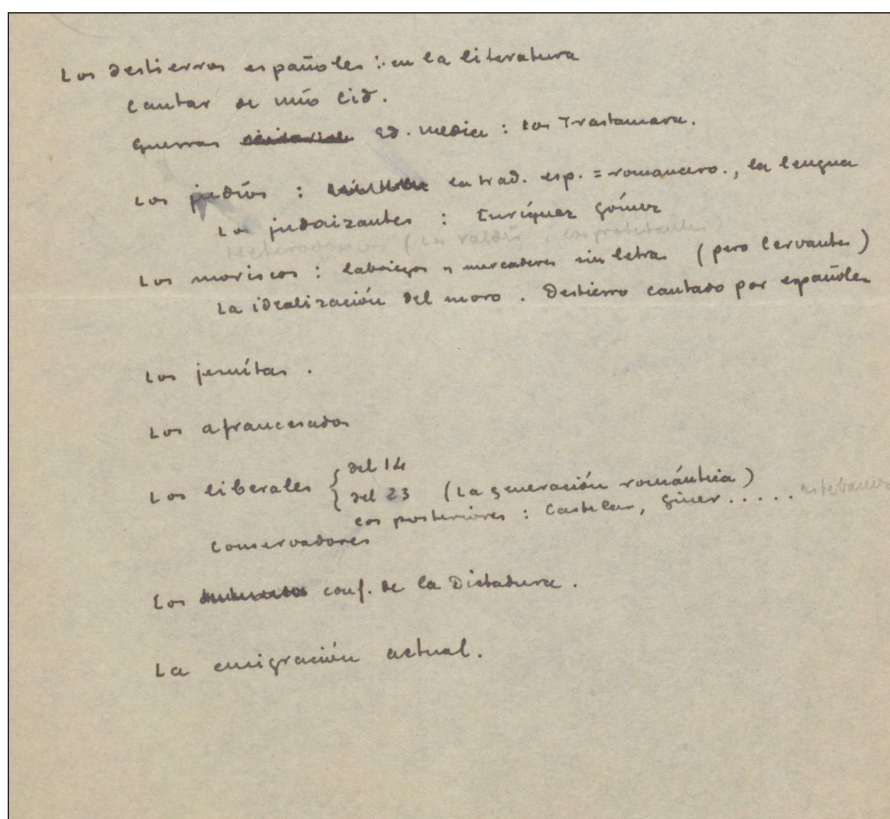 Los destierros españoles : en la literatura
Cantar de mío Cid.
Guerras Ed. Media : los Trastamara.
Los judíos : la trad. esp. = romancero., la lengua
Los judaizantes : Enríquez Gómez
Heterodoxos (Los Valdés, los protestantes)
Los moriscos : labriegos y mercaderes sin letras (pero Cervantes)
La idealización del moro. Destierro cantado por españoles
Los jesuítas.
Los afrancesados
Los liberales { del 14
{ del 23 (La generación romántica)
los posteriores : Castelar, Giner.....
Conservadores
Los conf. de la Dictadura.
La emigración actual.